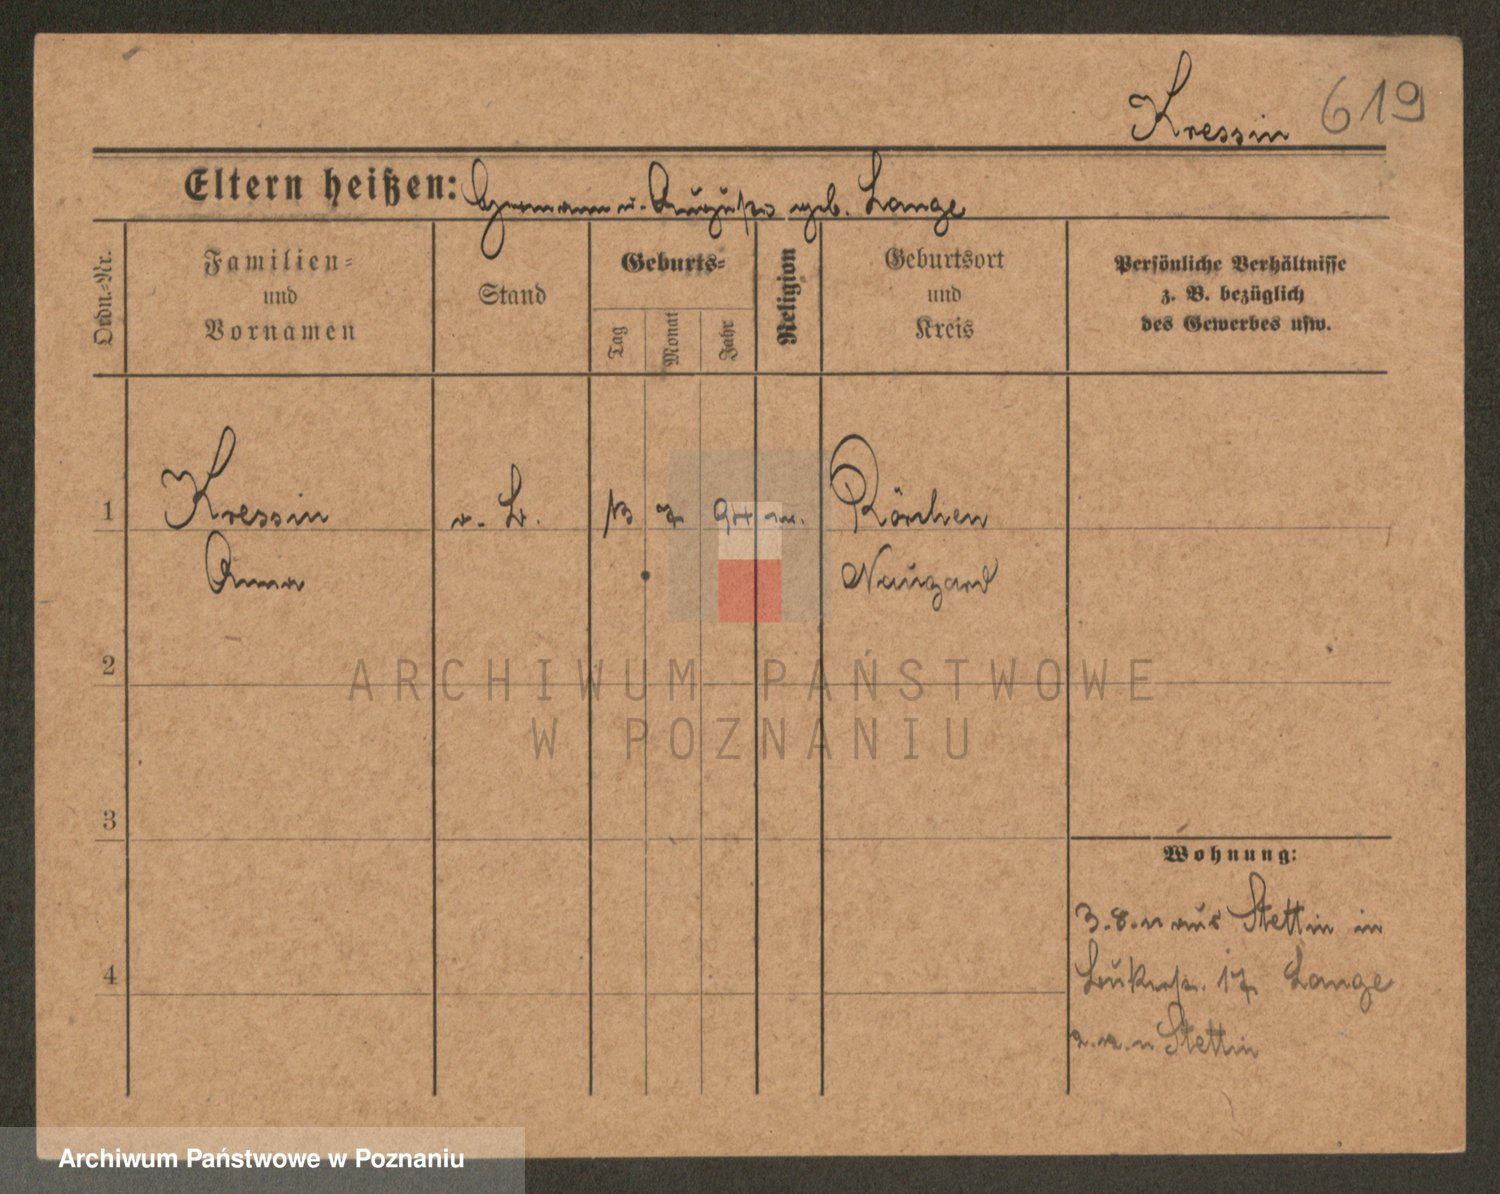 Kressin 619
Eltern heißen: Hermann u. Auguste geb. Lange
Ordn.-Nr.
Familien-
und
Vornamen
Stand
Geburts-
Tag
Monat
Jahr
Religion
Geburtsort
und
Kreis
Persönliche Verhältnisse
z. B. bezüglich
des Gewerbes usw.
1 Kressin 13 7 Rörchen
Anna Naugard
2
3
4
Wohnung:
3.8.11 aus Stettin in
17 Lange
n Stettin
ARCHIWUM PAŃSTWOWE
W POZNANIU
Archiwum Państwowe w Poznaniu